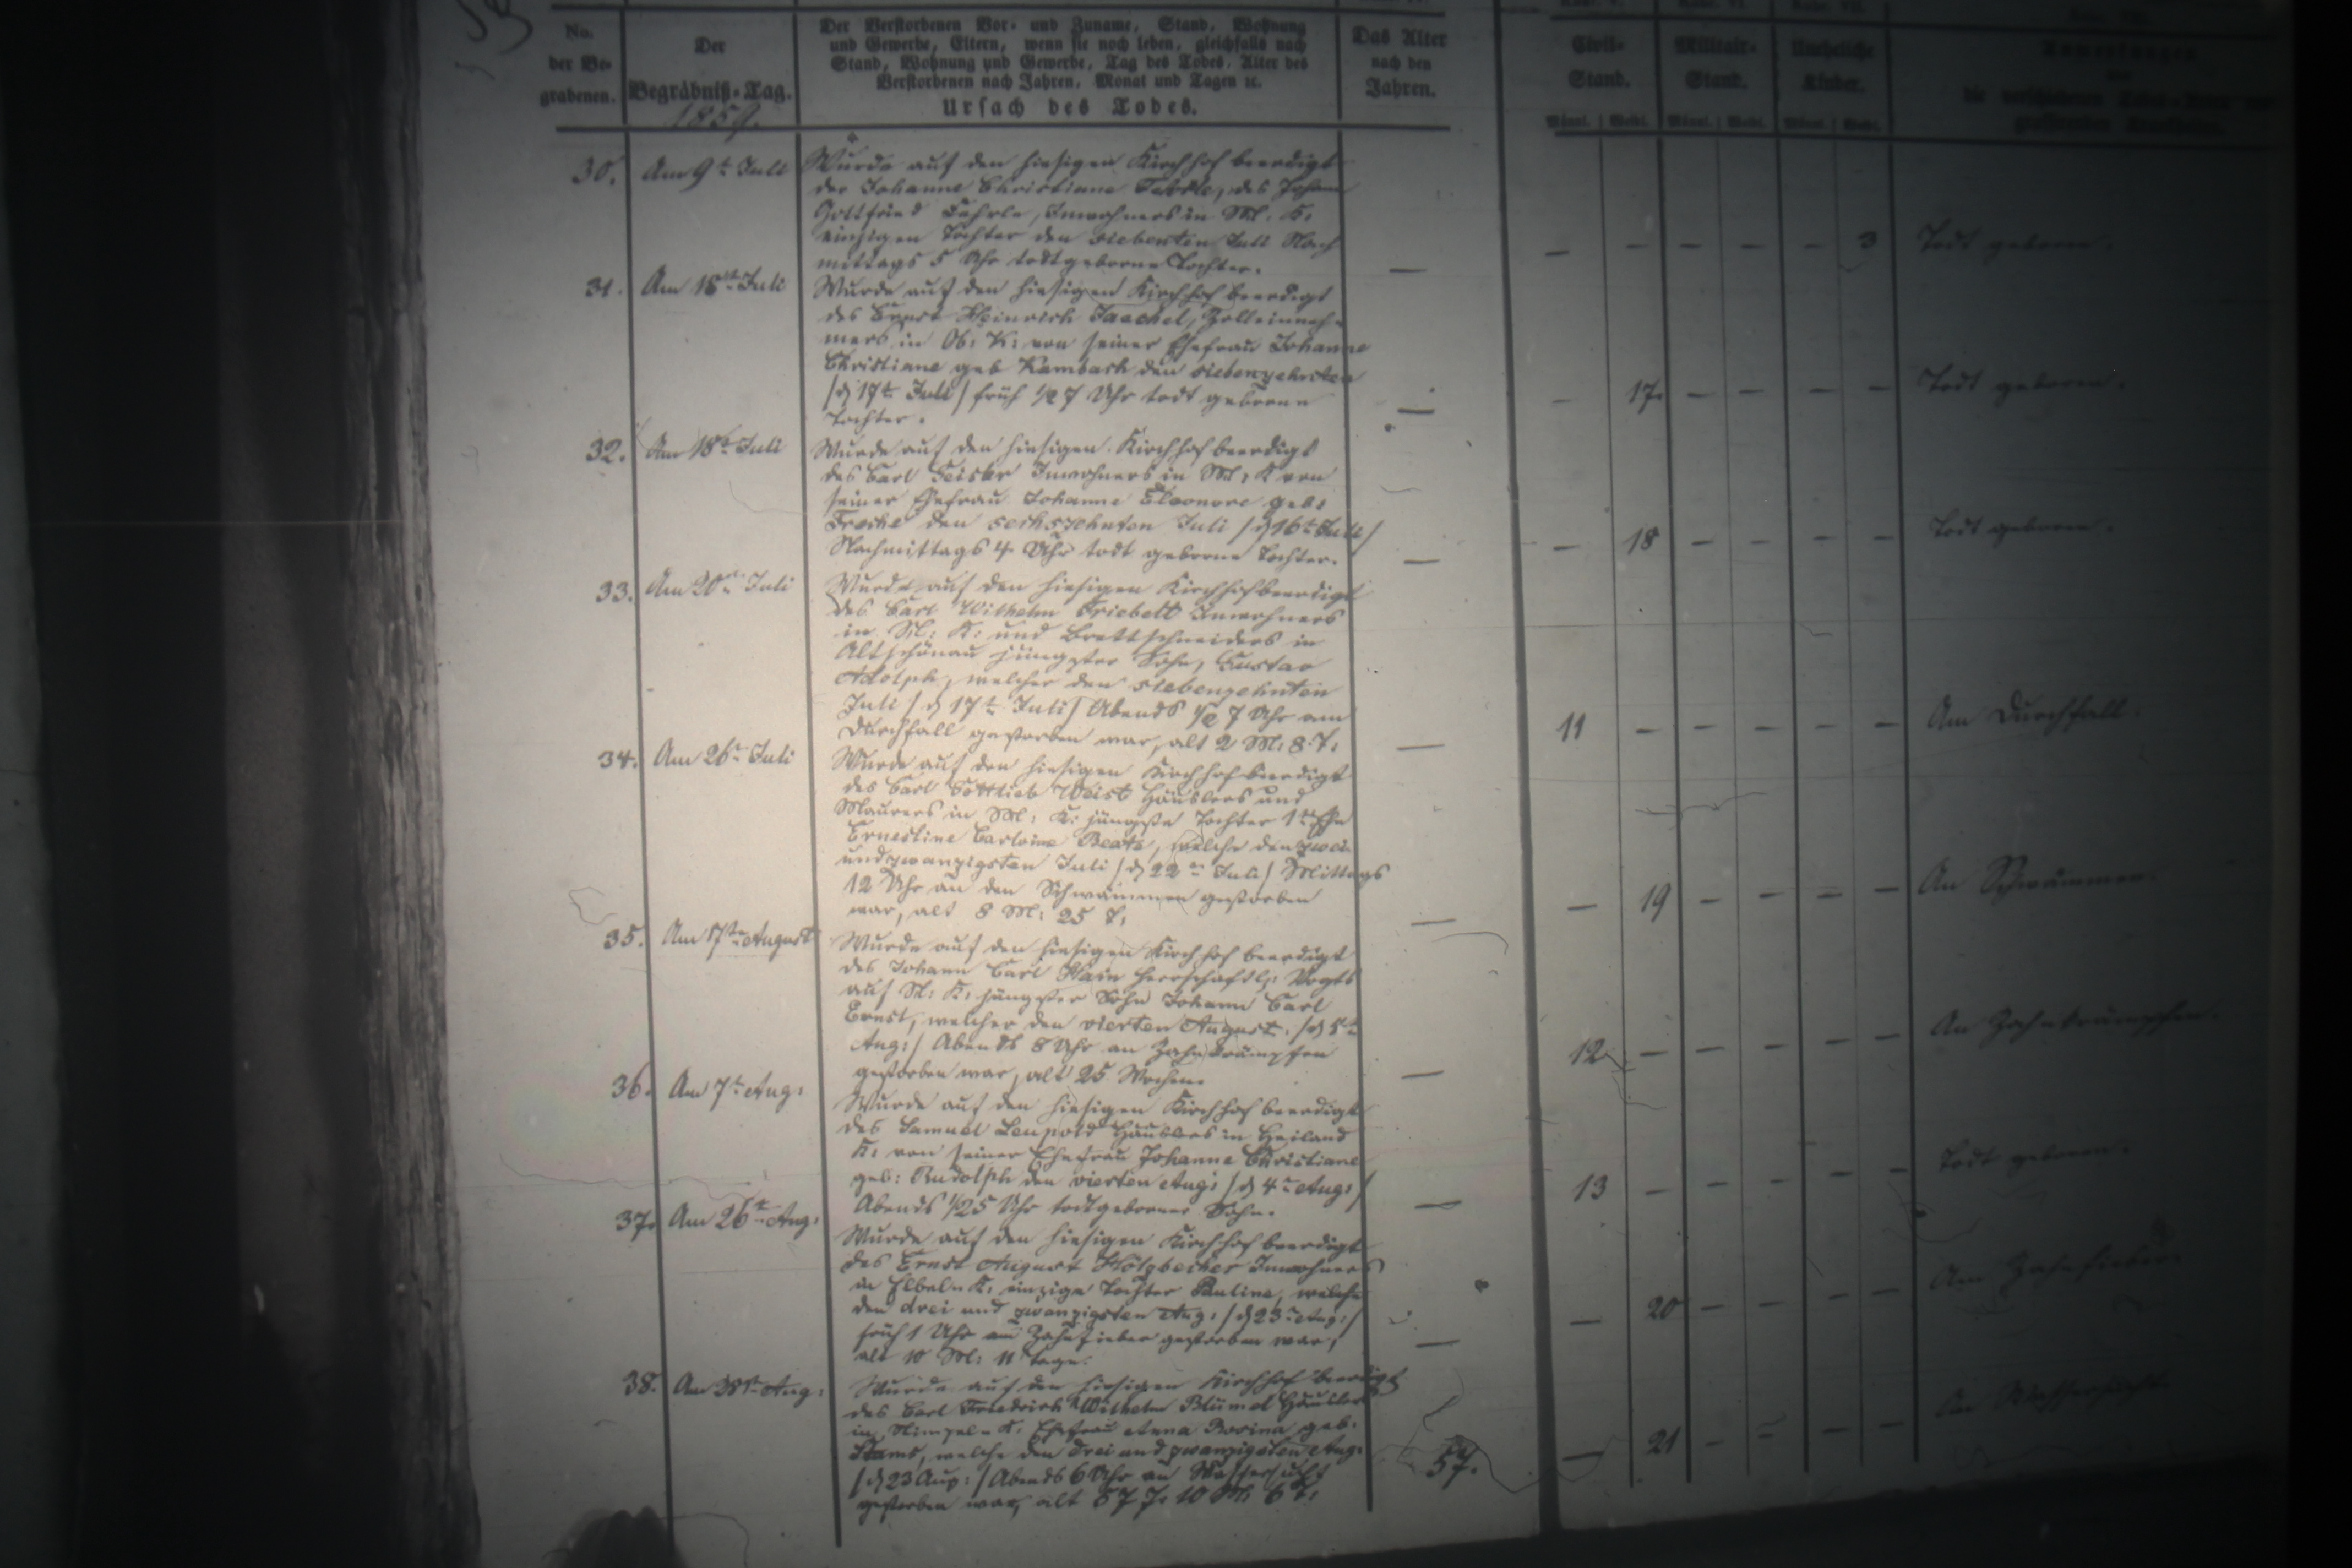 No.
der Be-
grabenen.
Der
Begräbniß-Tag.
1859.
Der Verstorbenen Vor- und Zuname, Stand, Wohnung
und Gewerbe, Eltern, wenn sie noch leben, gleichfalls nach
Stand, Wohnung und Gewerbe, Tag des Todes, Alter des
Verstorbenen nach Jahren, Monat und Tagen ꝛc.
Ursach des Todes.
Das Alter
nach den
Jahren.
Civil-
Stand.
Militair-
Stand.
Uneheliche
Kinder.
Männl. Weibl. Männl. Weibl. Männl. Weibl.
30. Am 9t Juli Wurde auf den hiesigen Kirchhof beerdigt
der Johanne Christiane des Johann
Gottfried Inwohners in M: K:
einzigen Tochter den siebenten Juli Nach
mittags 5 Uhr todtgeborne Tochter. — — — — — — 3 Todt geboren.
31. Am 18t Juli Wurde auf den hiesigen Kirchhof beerdigt
des Ernst Heinrich Jaeckel, Zolleinneh
mers in Ob: K: von seiner Ehefrau Johanne
Christiane geb Kambach den siebenzehnten
/d 17t Juli/ früh 1/2 7 Uhr todt geborne
Tochter. — — 17. — — — — Todt geboren.
32. Am 18t Juli Wurde auf den hiesigen Kirchhof beerdigt
des Carl Inwohners in M: K von
seiner Ehefrau Johanne Eleonore geb:
den sechszehnten Juli /d 16t Juli/
Nachmittags 4 Uhr todt geborne Tochter. — — 18 — — — — Todt geboren.
33. Am 20t Juli Wurde auf den hiesigen Kirchhof beerdigt
des Carl Wilhelm Friebelt Inwohners
in M: K: und Brettschneiders in
Altschönau jüngster Sohn, Gustav
Adolph, welcher den siebenzehnten
Juli /d 17t Juli/ Abends 1/2 7 Uhr am
Durchfall gestorben war, alt 2 M: 8 T: — 11 — — — — — Am Durchfall.
34. Am 26t Juli Wurde auf den hiesigen Kirchhof beerdigt
des Carl Gottlieb Weist Häuslers und
Maurers in M: K: jüngste Tochter 1ter Ehe
Ernestine Beate, welche den zwei
undzwanzigsten Juli /d 22t Juli/ Mittags
12 Uhr an den Schwämmen gestorben
war, alt 8 M: 25 T: — — 19 — — — — An Schwämmen.
35. Am August Wurde auf den hiesigen Kirchhof beerdigt
des Johann Carl Hain herrschaftl: Vogts
auf K: jüngster Sohn Johann Carl
Ernst, welcher den vierten August /d
Aug:/ Abends 8 Uhr an Zahnkrämpfen
gestorben war, alt 25 Wochen. — 12 — — — — — An Zahnkrämpfen.
36. Am 7t Aug: Wurde auf den hiesigen Kirchhof beerdigt
des Samuel Leupold Häuslers in Heiland
K: von seiner Ehefrau Johanne Christiane
geb: Rudolph den vierten Aug: /d 4t Aug:/
Abends 1/2 5 Uhr todtgeborner Sohn. — 13 — — — — — Todt geboren.
37. Am 26t Aug: Wurde auf den hiesigen Kirchhof beerdigt
des Ernst August Hölzbecher Inwohners
in Elbel= K: einzige Tochter Pauline, welche
den drei und zwanzigsten Aug: /d 23t Aug:/
früh 1 Uhr am Zahnfieber gestorben war,
alt 10 M: 11 Tage. — — 20 — — — — Am Zahnfieber.
38. Am Aug: Wurde auf den hiesigen Kirchhof beerdigt
des Carl Friedrich Wilhelm Blümel Häuslers
in K: Ehefrau Anna Rosina geb.
welche den drei und zwanzigsten Aug:
/d 23 Aug:/ Abends 6 Uhr an Wassersucht
gestorben war, alt 57 J: 10 M: 6 T: 57. — 21 — — — — An Wassersucht.